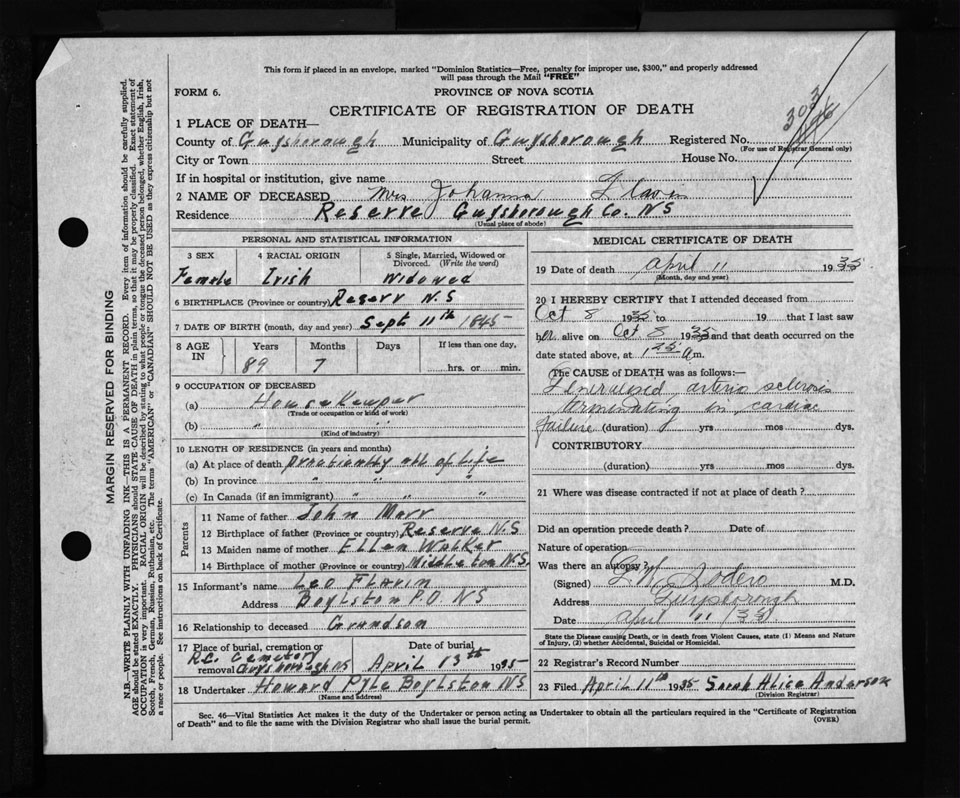 This form if placed in an envelope, marked "Dominion Statistics—Free, penalty for improper use, $300," and properly addressed
will pass through the Mail "FREE"
FORM 6.
PROVINCE OF NOVA SCOTIA
CERTIFICATE OF REGISTRATION OF DEATH
303
1 PLACE OF DEATH—
County of Guysborough Municipality of Guysborough Registered No.
(For use of Registrar General only)
City or Town Street House No.
If in hospital or institution, give name
2 NAME OF DECEASED Mrs Johanna Flavin
Residence Reserve Guysborough Co. N S
(Usual place of abode)
PERSONAL AND STATISTICAL INFORMATION
3 SEX 4 RACIAL ORIGIN 5 Single, Married, Widowed or Divorced. (Write the word)
Female Irish Widowed
6 BIRTHPLACE (Province or country) Reserv N.S
7 DATE OF BIRTH (month, day and year) Sept 11th 1845
8 AGE IN Years Months Days If less than one day,
89 7 hrs. or min.
9 OCCUPATION OF DECEASED
(a) Housekeeper
(Trade or occupation or kind of work)
(b) " "
(Kind of industry)
10 LENGTH OF RESIDENCE (in years and months)
(a) At place of death all of Life
(b) In province " " "
(c) In Canada (if an immigrant) " " "
Parents
11 Name of father John Marr
12 Birthplace of father (Province or country) Reserve N.S
13 Maiden name of mother Ellen Walker
14 Birthplace of mother (Province or country) Middleton N.S.
15 Informant's name Leo Flavin
Address Boylston P.O. NS
16 Relationship to deceased Grandson
17 Place of burial, cremation or removal R.C. Cemetery Guysborough NS
Date of burial April 13th 1935
18 Undertaker Howard Pyle Boylston NS
(Name and address)
MEDICAL CERTIFICATE OF DEATH
19 Date of death April 11 1935
(Month, day and year)
20 I HEREBY CERTIFY that I attended deceased from
Oct 8 1935 to 19 that I last saw
her alive on Oct 8 1935 and that death occurred on the
date stated above, at 1 a m.
The CAUSE of DEATH was as follows:—
Generalised arterio sclerosis
terminating in cardiac
failure (duration) yrs mos dys.
CONTRIBUTORY
(duration) yrs. mos. dys.
21 Where was disease contracted if not at place of death?
Did an operation precede death? Date of
Nature of operation
Was there an autopsy?
(Signed) M.D.
Address Guysborough
Date April 11 1935
State the Disease causing Death, or in death from Violent Causes, state (1) Means and Nature
of Injury, (2) whether Accidental, Suicidal or Homicidal.
22 Registrar's Record Number
23 Filed April 11th 1935 Sarah Alice Anderson
(Division Registrar)
Sec. 46—Vital Statistics Act makes it the duty of the Undertaker or person acting as Undertaker to obtain all the particulars required in the "Certificate of Registration
of Death" and to file the same with the Division Registrar who shall issue the burial permit.
(OVER)
MARGIN RESERVED FOR BINDING
N.B.—WRITE PLAINLY WITH UNFADING INK—THIS IS A PERMANENT RECORD. Every item of information should be carefully supplied.
AGE should be stated EXACTLY. PHYSICIANS should STATE CAUSE OF DEATH in plain terms, so that it may be properly classified. Exact statement of
OCCUPATION is very important. RACIAL ORIGIN will be described by stating to what people or tongue the deceased person belonged, whether English, Irish,
Scotch, French, German, Russian, Ruthenian, etc. The terms "AMERICAN" or "CANADIAN" SHOULD NOT BE USED as they express citizenship but not
a race or people. See instructions on back of Certificate.